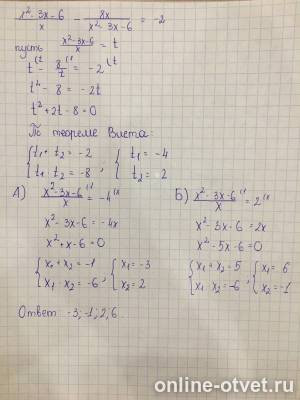 x² - 3x - 6 / x - 8x / x² - 3x - 6 = -2
пусть x² - 3x - 6 / x = t
t (t - 8 / t (1 = -2 (t
t² - 8 = -2t
t² + 2t - 8 = 0
По теореме Виета:
{ t₁ + t₂ = -2 { t₁ = -4
{ t₁ · t₂ = -8 , { t₂ = 2
А) x² - 3x - 6 (1 / x = -4 (x
x² - 3x - 6 = -4x
x² + x - 6 = 0
{ x₁ + x₂ = -1 { x₁ = -3
{ x₁ · x₂ = -6 , { x₂ = 2
Б) x² - 3x - 6 (1 / x = 2 (x
x² - 3x - 6 = 2x
x² - 5x - 6 = 0
{ x₁ + x₂ = 5 { x₁ = 6
{ x₁ · x₂ = -6 , { x₂ = -1
Ответ: -3; -1; 2; 6.
online-otvet.ru